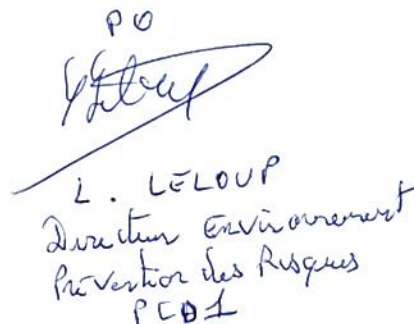 PO
L. LELOUP
Directeur Environnement
Prévention des Risques
PCD1